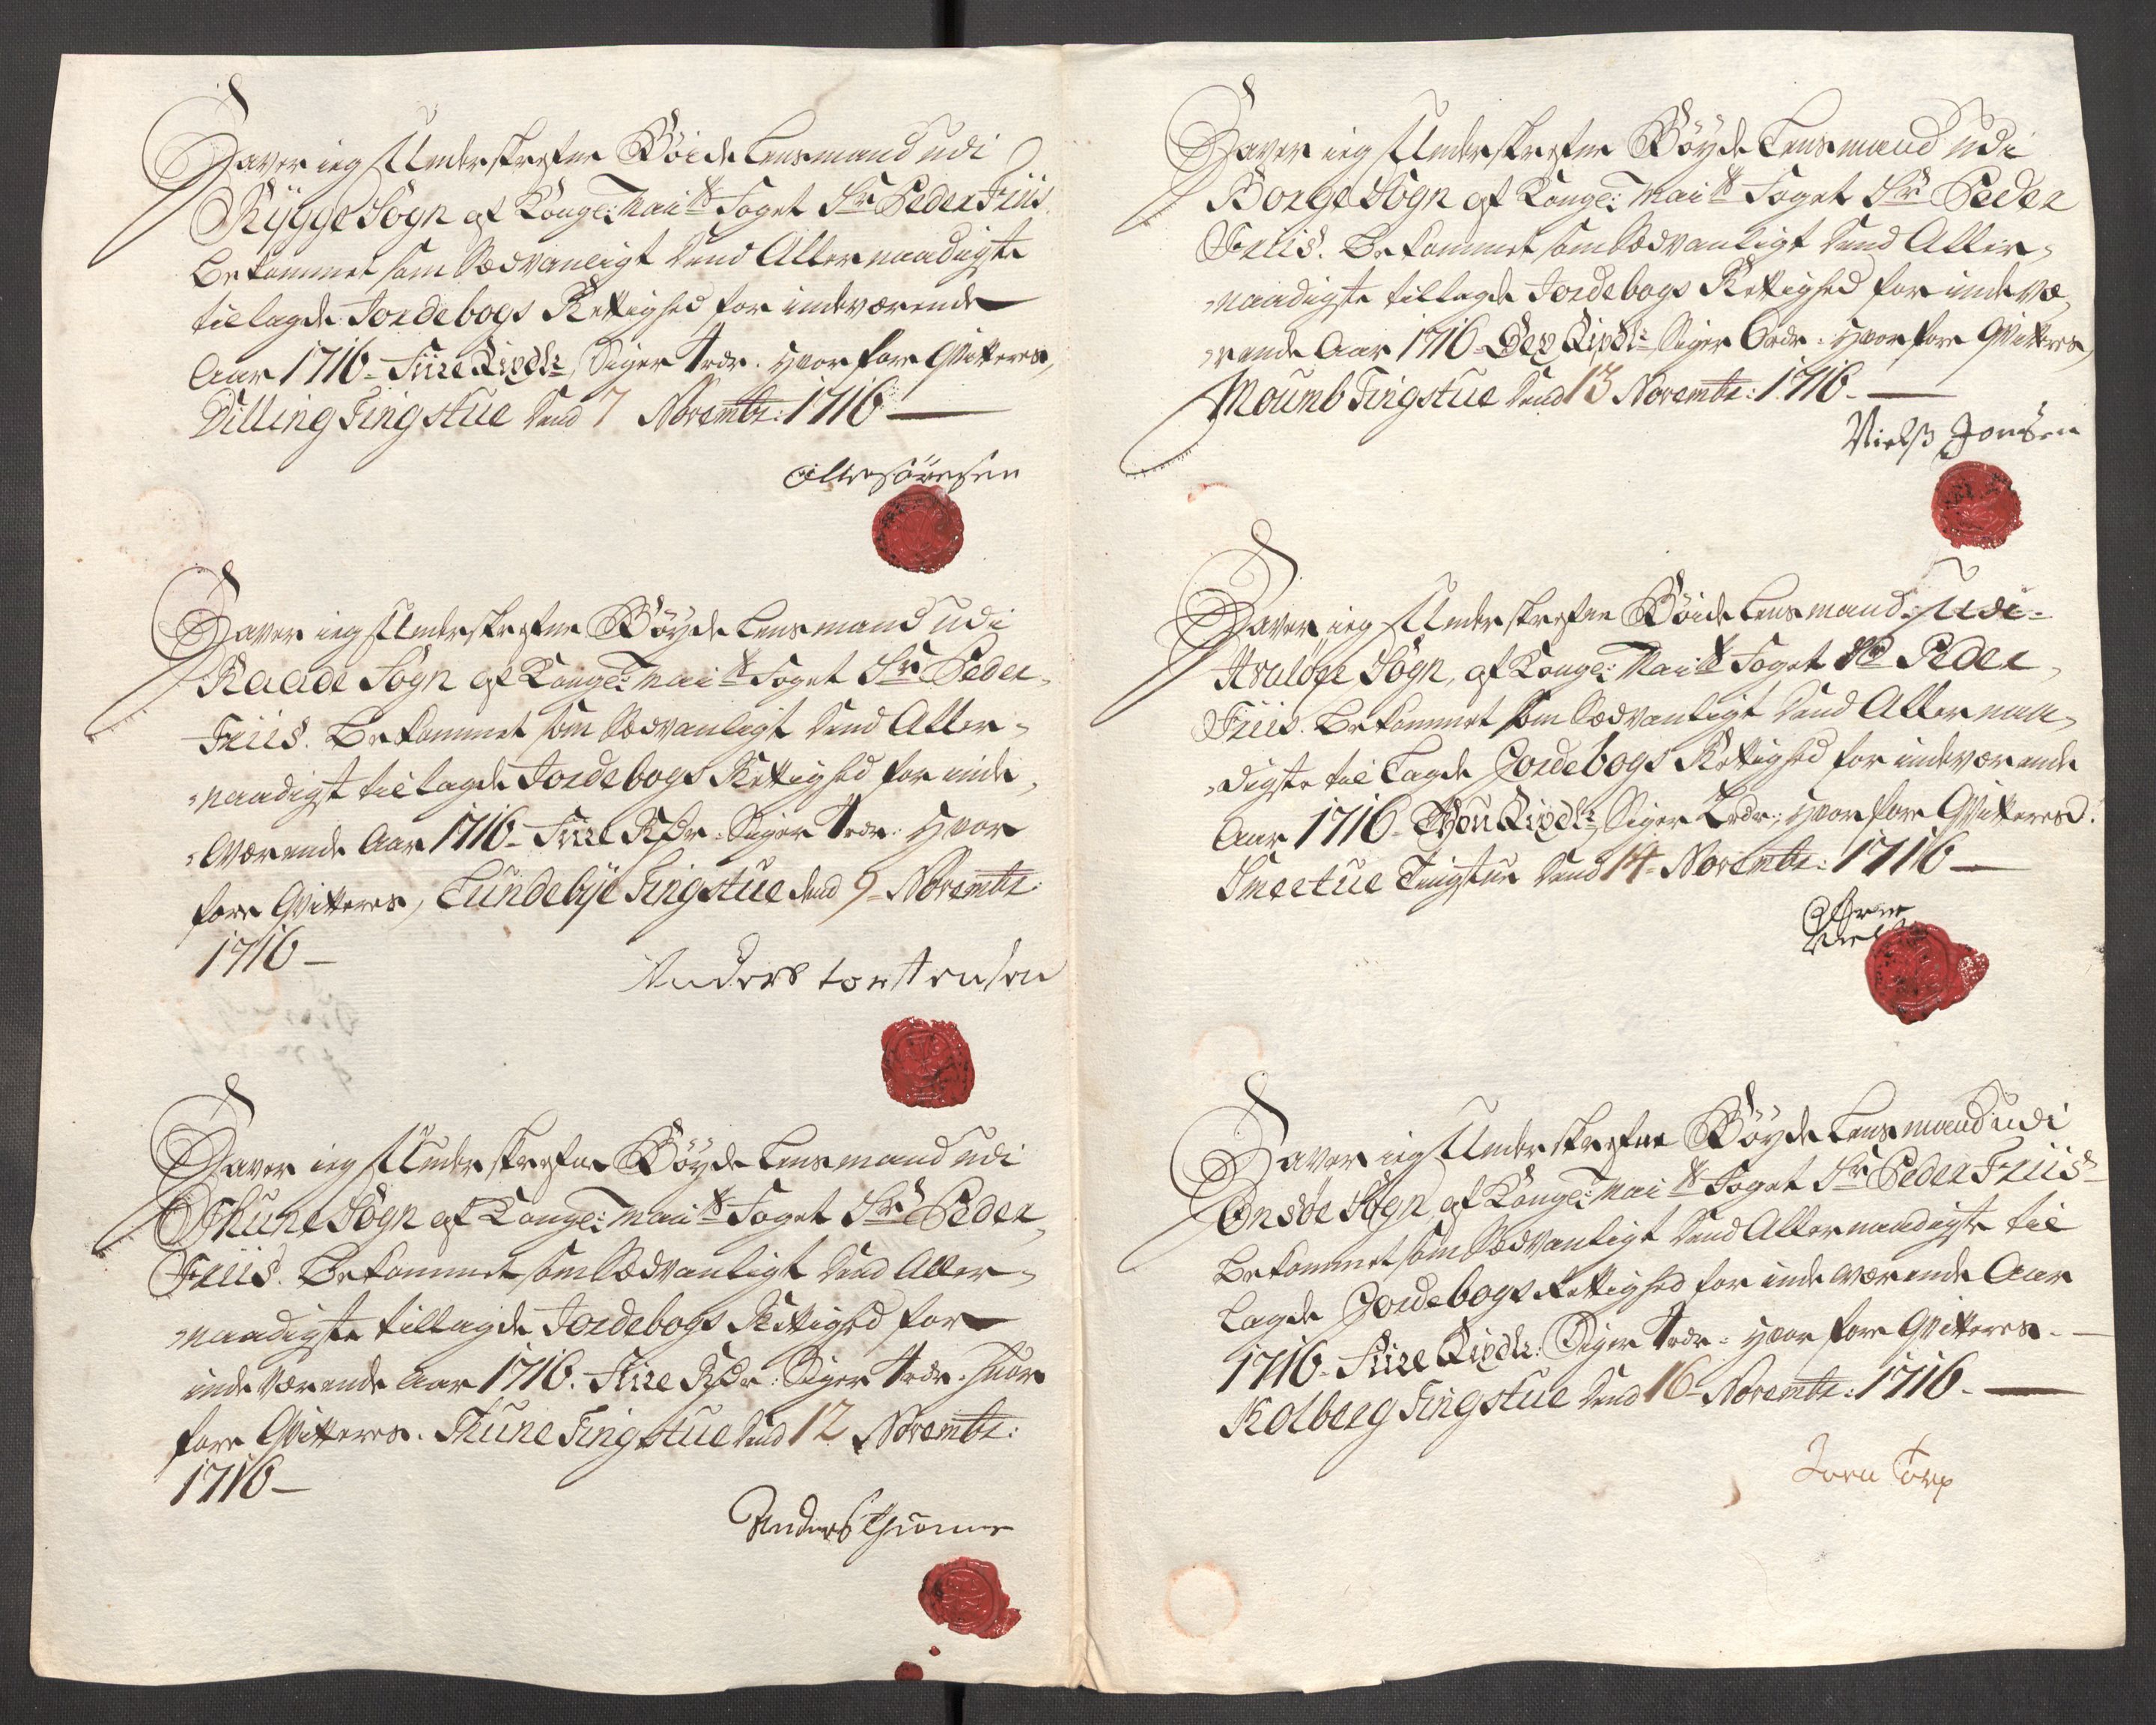 Haver ieg Underskrefne Böide Lensmand udi
Rÿgge Sogn af Kongl: Maiits Foget Sr Peder Friis
Bekommet som Sædvanligt Dend Aller naadigste
tillagde Jordebogs Rettighed for indeværende
Aar 1716 - Fiire Rixdlr Siger 4 rdr. hvorfore Qvitteres,
Dilling Tingstue Dend 7 Novembr: 1716 —
Olle Sörensen
Haver ieg Underskrefne Böyde Lensmand udi
Raade Sogn af Kongl: Maiits Foget Sr Peder
Friis. Bekommet som Sædvanligt Dend Aller-
naadigst tillagde Jordebogs Rettighed for inde-
værende Aar 1716 - Fiire Rdr - Siger 4 rdr: hvor
fore Qvitteres, Lundebÿe Tingstue dend 9 - Novembr:
1716 —
Anders torstensen
Haver ieg Underskrefne Böyde Lensmand udi
Thune Sogn af Kongl: Maiits Foget Sr Peder
Friis. Bekommet som Sædvanligt Dend Aller-
naadigste tillagde Jordebogs Rettighed for
inde værende Aar 1716. Fiire Rdr: Siger 4 rdr. huor
fore Qvitteres. Thune Tingstue Dend 12 Novembr:
1716 —
Anders Thuunne
Haver ieg Underskrefne Böyde Lensmand udi
Borge Sogn af Kongl: Maiits Foget Sr Peder
Friis. Bekommet som Sædvanligt Dend Aller-
naadigste tillagde Jordebogs Rettighed for indevæ-
rende Aar 1716 - Sex Rixdlr Siger 6 rdr. hvorfore Qvitteres,
Moumb Tingstue Dend 13 Novembr: 1716 —
Nielß Jonsen
Haver ieg Underskrefne Böide Lensmand udi
Hvaløse Sogn, af Kongl: Maiits Foget Sr Peder
Friis. Bekommet som Sædvanligt Dend Aller naa-
digste til Lagde Jordebogs Rettighed for indeværende
Aar 1716 - Thou Rixdlr, Siger 2 rdr: hvorfore Qvitteres.
Smertue Tingstue Dend 14 - Novembr: 1716 —
Haver ieg Underskrefne Böyde Lensmand udi
Onsøe Sogn, af Kongl: Maiits Foget Sr Peder Friis
Bekommet som Sædvanligt Dend Aller naadigste til
Lagde Jordebogs Rettighed for inde værende Aar
1716 - Fiire Rixdlr: Siger 4 rdr - hvor fore Qvitteres. —
Kolberg Tingstue Dend 16 - Novembr: 1716 —
Torp